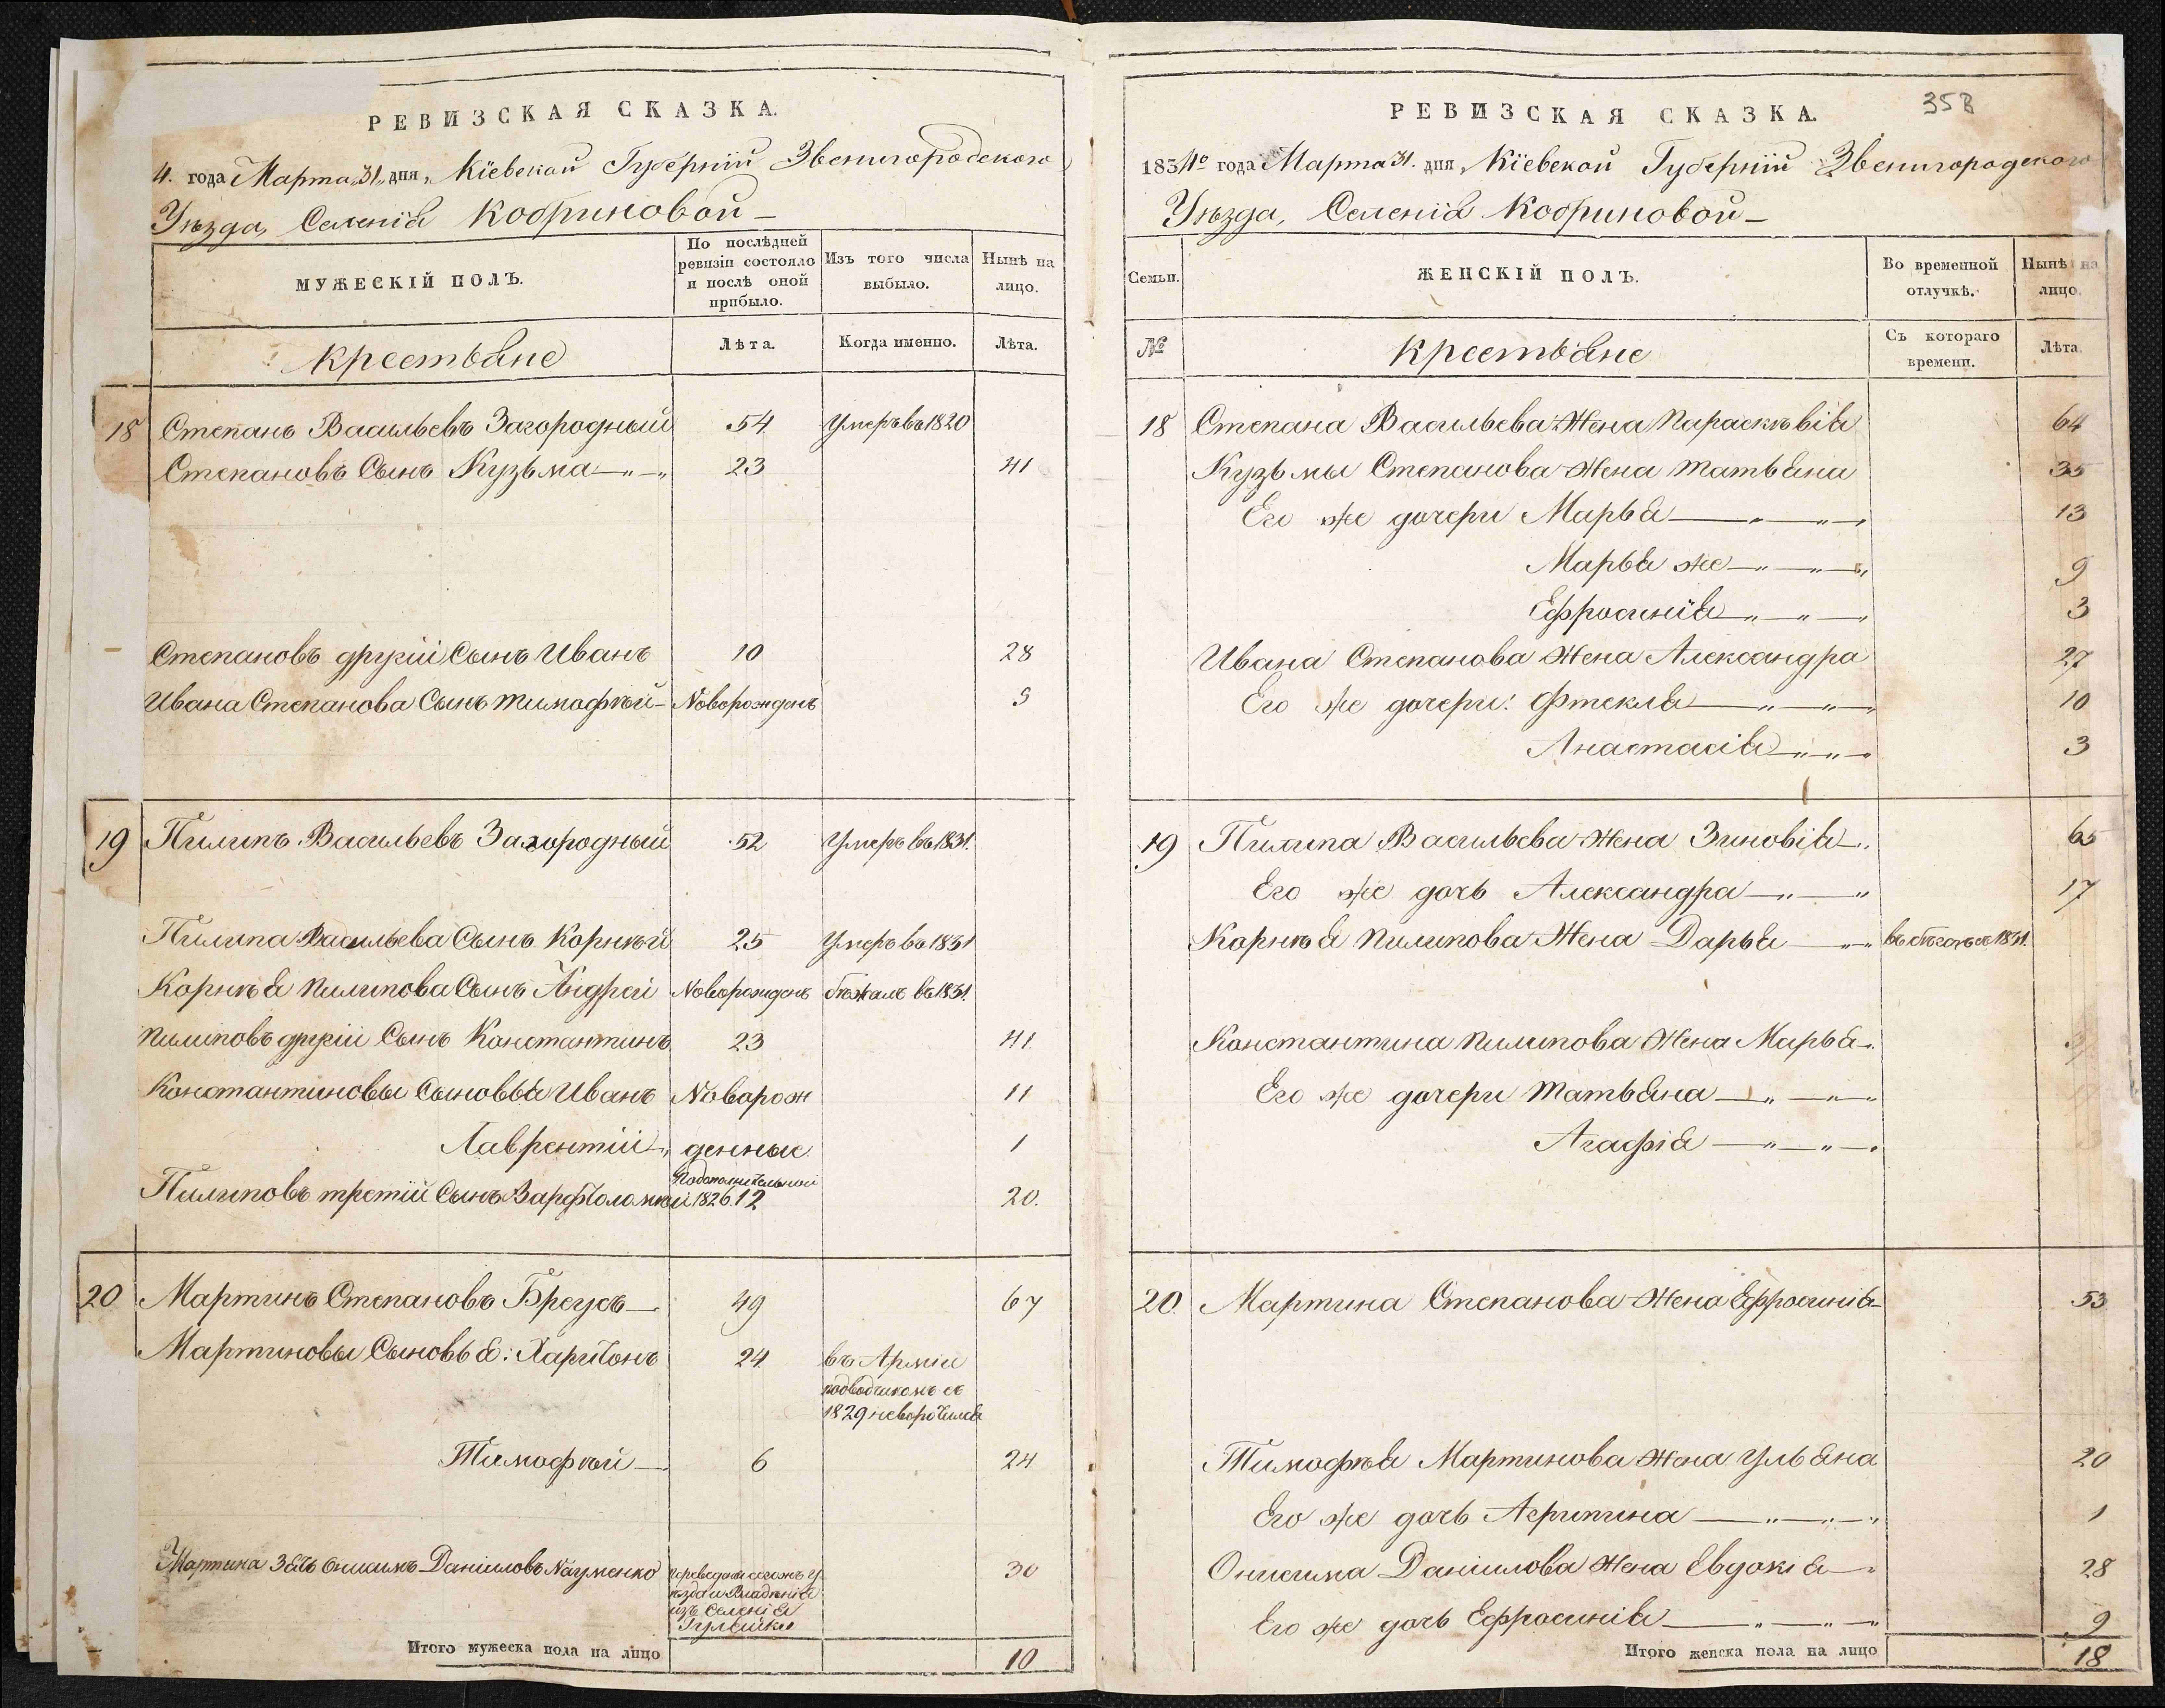 РЕВИЗСКАЯ СКАЗКА.
4. года Марта „31„ дня „ Кіевской Губерніи Звенигородского
Уѣзда, Селенія Кобриновой —
МУЖЕСКІЙ ПОЛЪ.
По послѣдней ревизіи состояло и послѣ оной прибыло.
Изъ того числа выбыло.
Нынѣ на лицо.
Крестьяне
Лѣта.
Когда именно.
Лѣта.
18 Степанъ Васильевъ Загородный 54 Умеръ въ 1820
Степановъ Сынъ Кузьма —„—„ 23 41
Степановъ другій Сынъ Иванъ 10 28
Ивана Степанова Сынъ Тимофѣй — Новорожденъ 5
19 Пилипъ Васильевъ Загородный 52 Умеръ въ 1831.
Пилипа Васильева Сынъ Корнѣй 25 Умеръ въ 1831
Корнѣя Пилипова Сынъ Андрей Новорожденъ бѣжалъ въ 1831.
Пилиповъ другіи Сынъ Константинъ 23 41
Константиновы Сыновья Иванъ Новорож 11
Лаврентіи „ денные. 1
Пилиповъ третіи Сынъ Варфоломѣй По дополнительной 1826. 12 20.
20 Мартинъ Степановъ Брегусъ — 49 67
Мартиновы Сыновья: Харитонъ 24 въ Арміи
подводчикомъ съ
1829 неворотился
Тимофѣй — 6 24
Мартина Зять Онисимъ Даниловъ Науменко 30
изъ Селенія
Итого мужеска пола на лицо 10
358
РЕВИЗСКАЯ СКАЗКА.
1834го года Марта 31. дня „ Кіевской Губерніи Звенигородского
Уѣзда, Селенія Кобриновой —
Семьи.
ЖЕНСКІЙ ПОЛЪ.
Во временной отлучкѣ.
Нынѣ на лицо.
№
Крестьяне
Съ котораго времени.
Лѣта.
18 Степана Васильева Жена Параскѣвія 64
Кузьмы Степанова Жена Татьяна 35
Его же дочери Марья —„—„— 13
Марья же —„—„ 9
Ефросинія „—„— 3
Ивана Степанова Жена Александра 27
Его же дочери: Фтекля —„—„— 10
Анастасія „—„— 3
19 Пилипа Васильева Жена Зиновія —„ 65
Его же дочь Александра —„—„ 17
Корнѣя Пилипова Жена Дарья —„— въ бѣгахъ съ 1831.
Константина Пилипова Жена Марья —.
Его же дочери Татьяна —„—„
Агафія —„—„—
20. Мартина Степанова Жена Ефросинія — 53
Тимофѣя Мартинова Жена Ульяна 20
Его же дочь Агрипина —„—„—„ 1
Онисима Данилова Жена Евдокія —„ 28
Его же дочь Ефросинія —„—„—„ 9
Итого женска пола на лицо 18